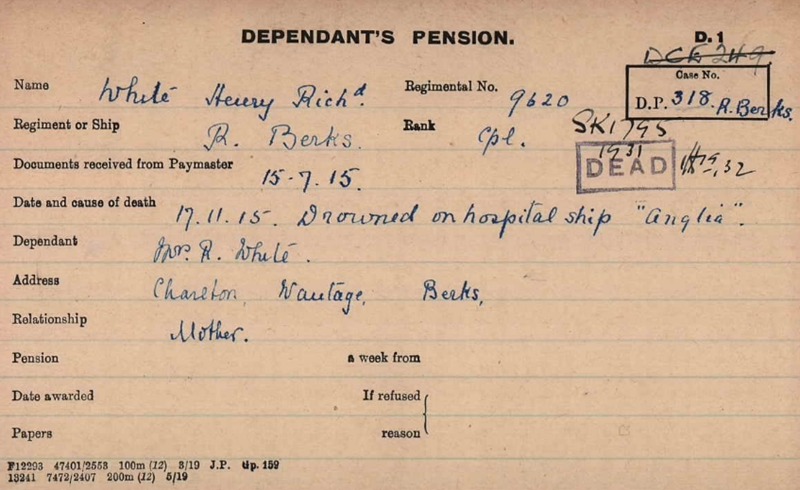 DEPENDANT'S PENSION.
D.1
DCE 249
Name White Henry Richd. Regimental No. 9620
Case No. D.P. 318. R. Berks.
Regiment or Ship R. Berks. Rank Cpl.
SK1795
1931
DEAD 32
Documents received from Paymaster 15-7.15.
Date and cause of death 17.11.15. Drowned on hospital ship "Anglia".
Dependant Mrs. R. White.
Address Charlton, Wantage, Berks,
Relationship Mother.
Pension a week from
Date awarded If refused
Papers reason
F12293 47401/2553 100m (12) 3/19 J.P. Gp. 159
13241 7472/2407 200m (12) 5/19